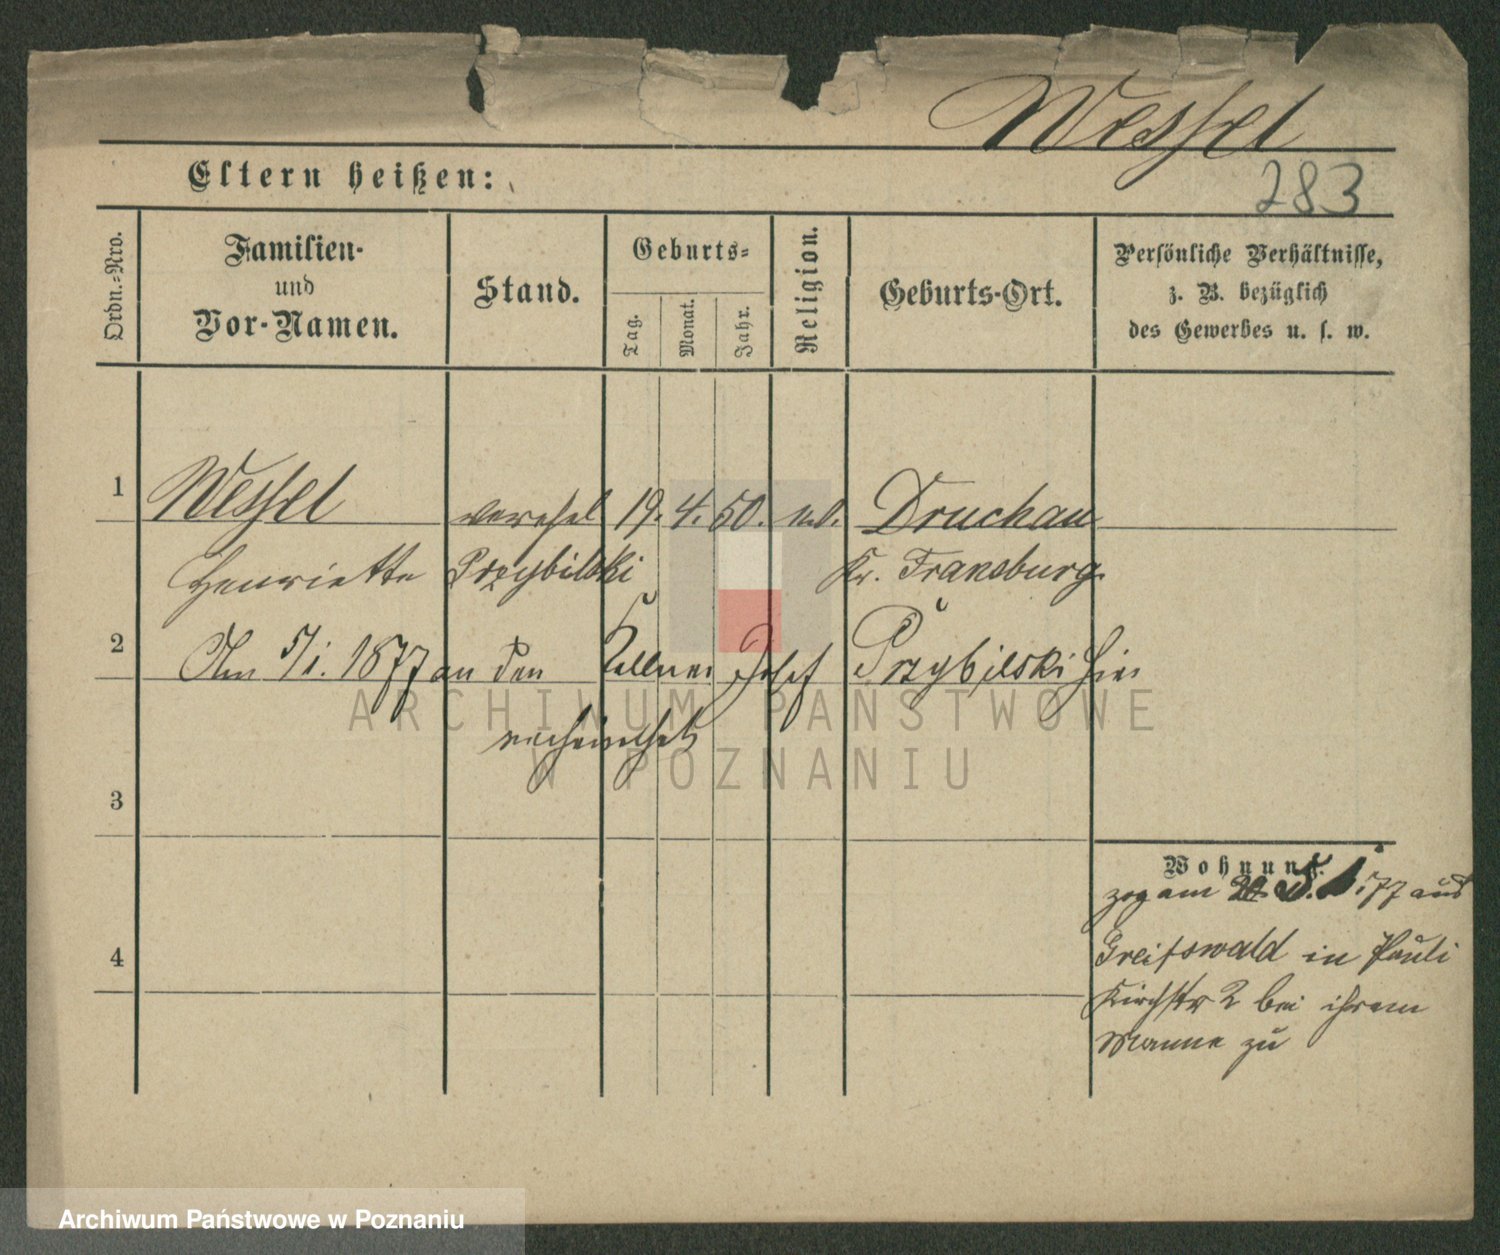 Wessel
283
Eltern heißen:
Ordn.-Nro.
Familien- und Vor-Namen.
Stand.
Geburts-
Tag.
Monat.
Jahr.
Religion.
Geburts-Ort.
Persönliche Verhältnisse,
z. B. bezüglich
des Gewerbes u. s. w.
1
Wessel 19. 4. 50. Druchau
Henriette Przybilski Kr. Fransburg
2
Am 5/1. 1877 an den Kellner Josef Przybilski hier
verheirathet
3
Wohnung.
zog am 5. 1. 77 aus
4
Greifswald in Pauli
Kirchstr 2 bei ihrem
Manne zu
ARCHIWUM PAŃSTWOWE
W POZNANIU
Archiwum Państwowe w Poznaniu